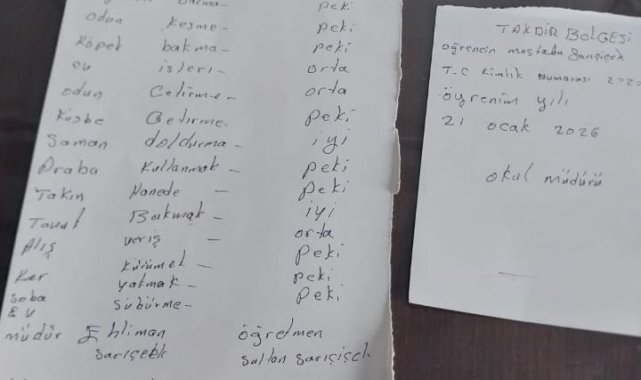 peki
odun kesme - peki
köpek bakma - peki
ev işleri - orta
odun Getirme - orta
Getirme - peki
Saman doldurma - iyi
Araba kullanmak - peki
Takın Hanede - peki
Tavuk Bakmak - iyi
Alış veriş - orta
Kar kürümek - peki
Soba yakmak - peki
EV Sübürme - peki
müdür Ehliman öğretmen
sarıçiçek sultan sarıçiçek
TAKDİR BELGESİ
öğrencin mustafa sarıçiçek
T.C Kimlik numarası
öğrenim yılı
21 ocak 2026
okul müdürü